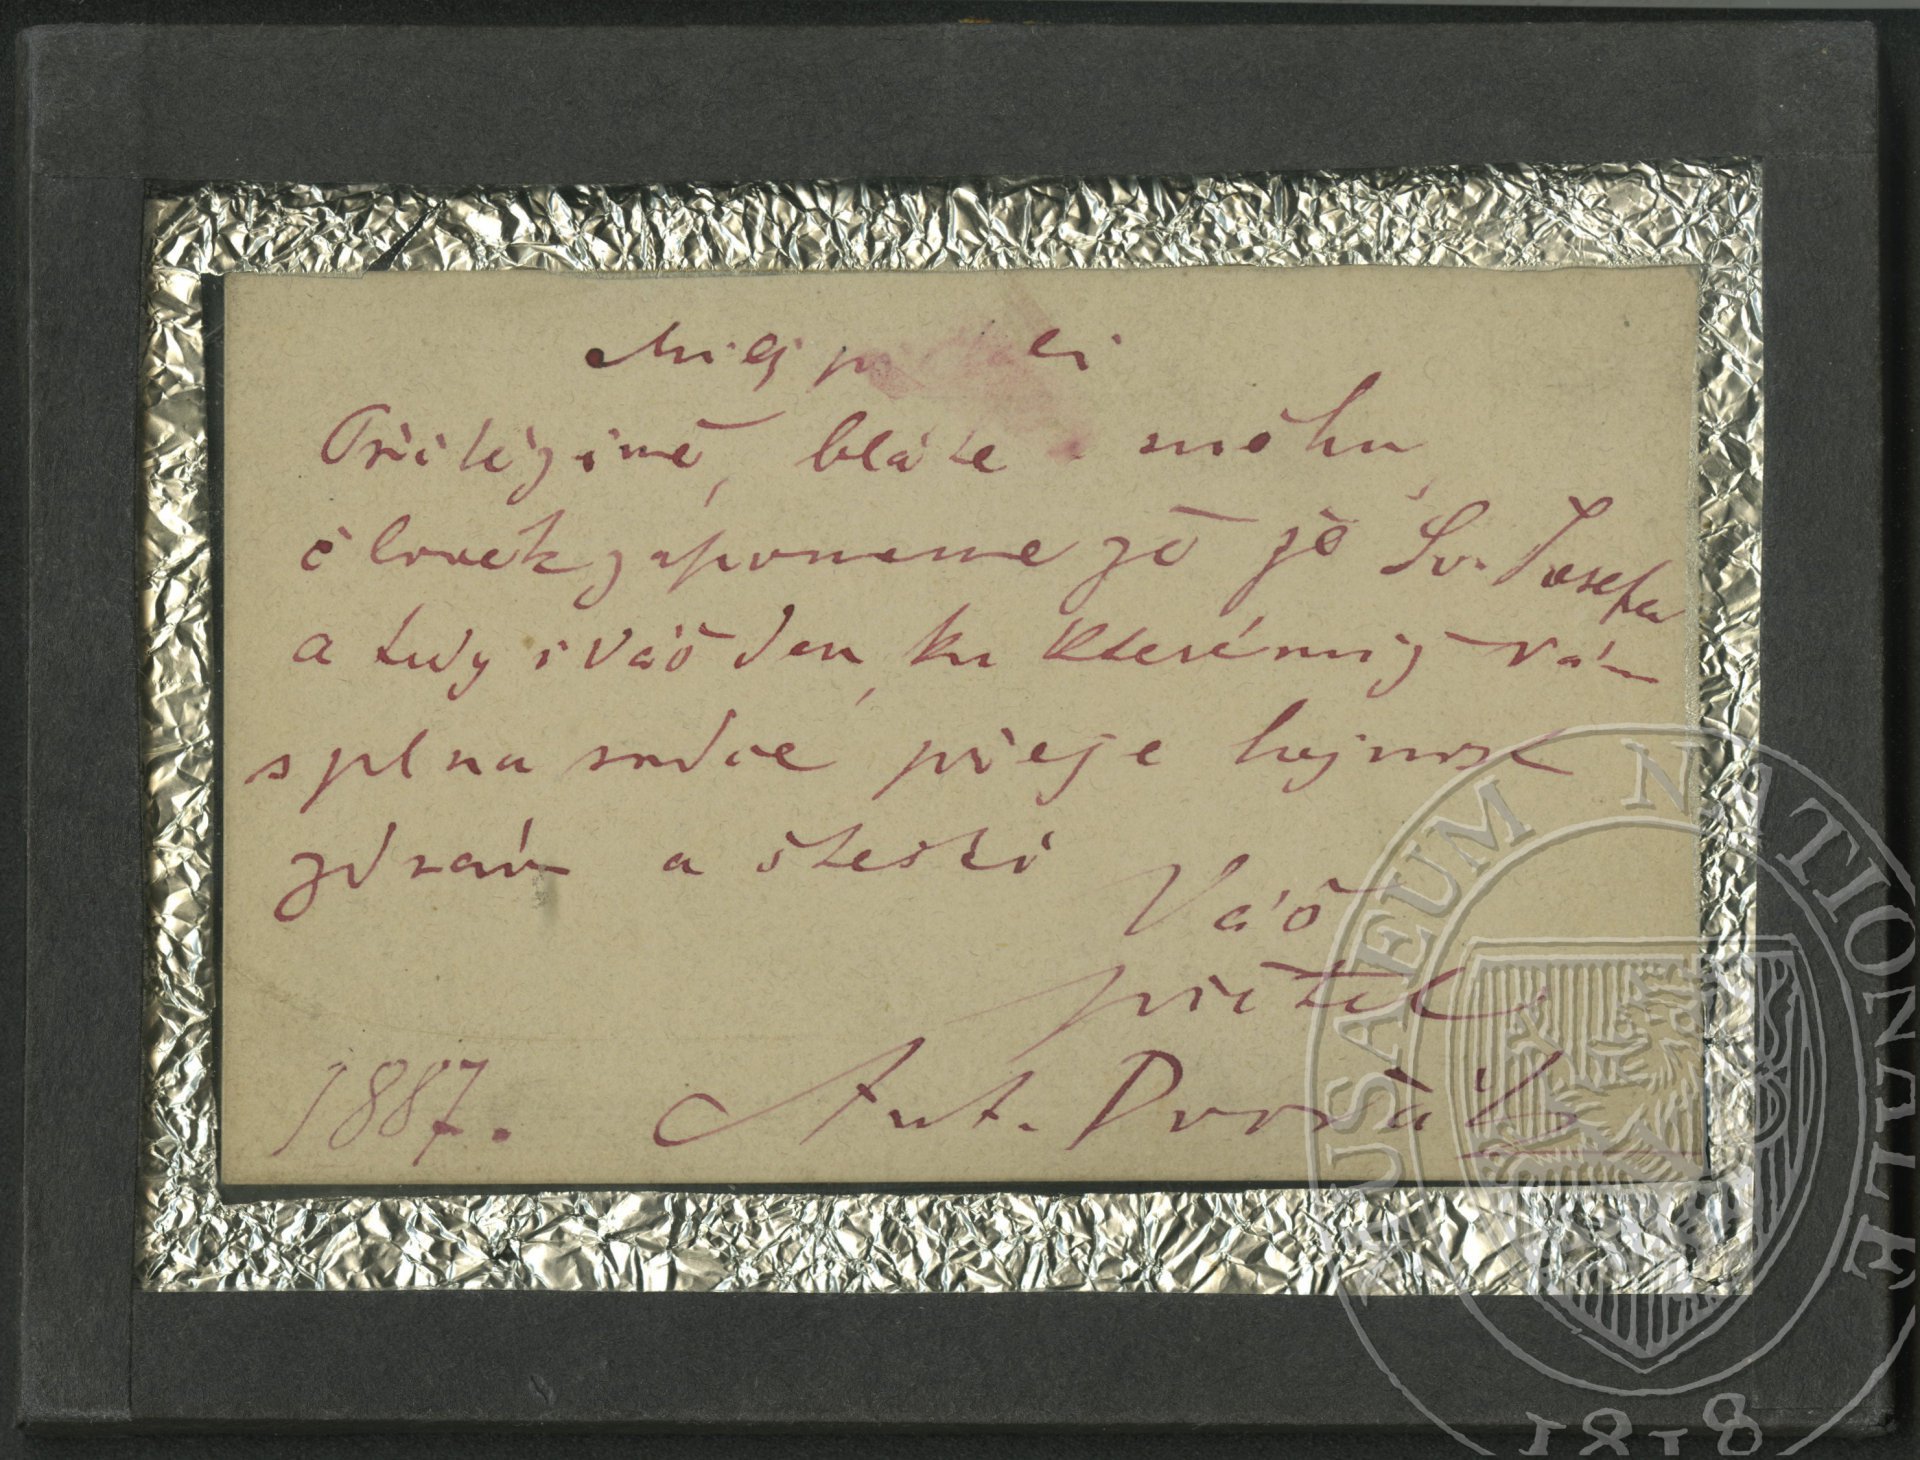 Milý příteli
Při té zimě, bláte a sněhu
člověk zapomene že je Sv. Josefa
a tudy i Váš den, ku kterémuž Vám
s plna srdce přeje hojnost
zdraví a štestí
Váš
přítel
1887. Ant. Dvořák
MUSAEUM NATIONALE
1818